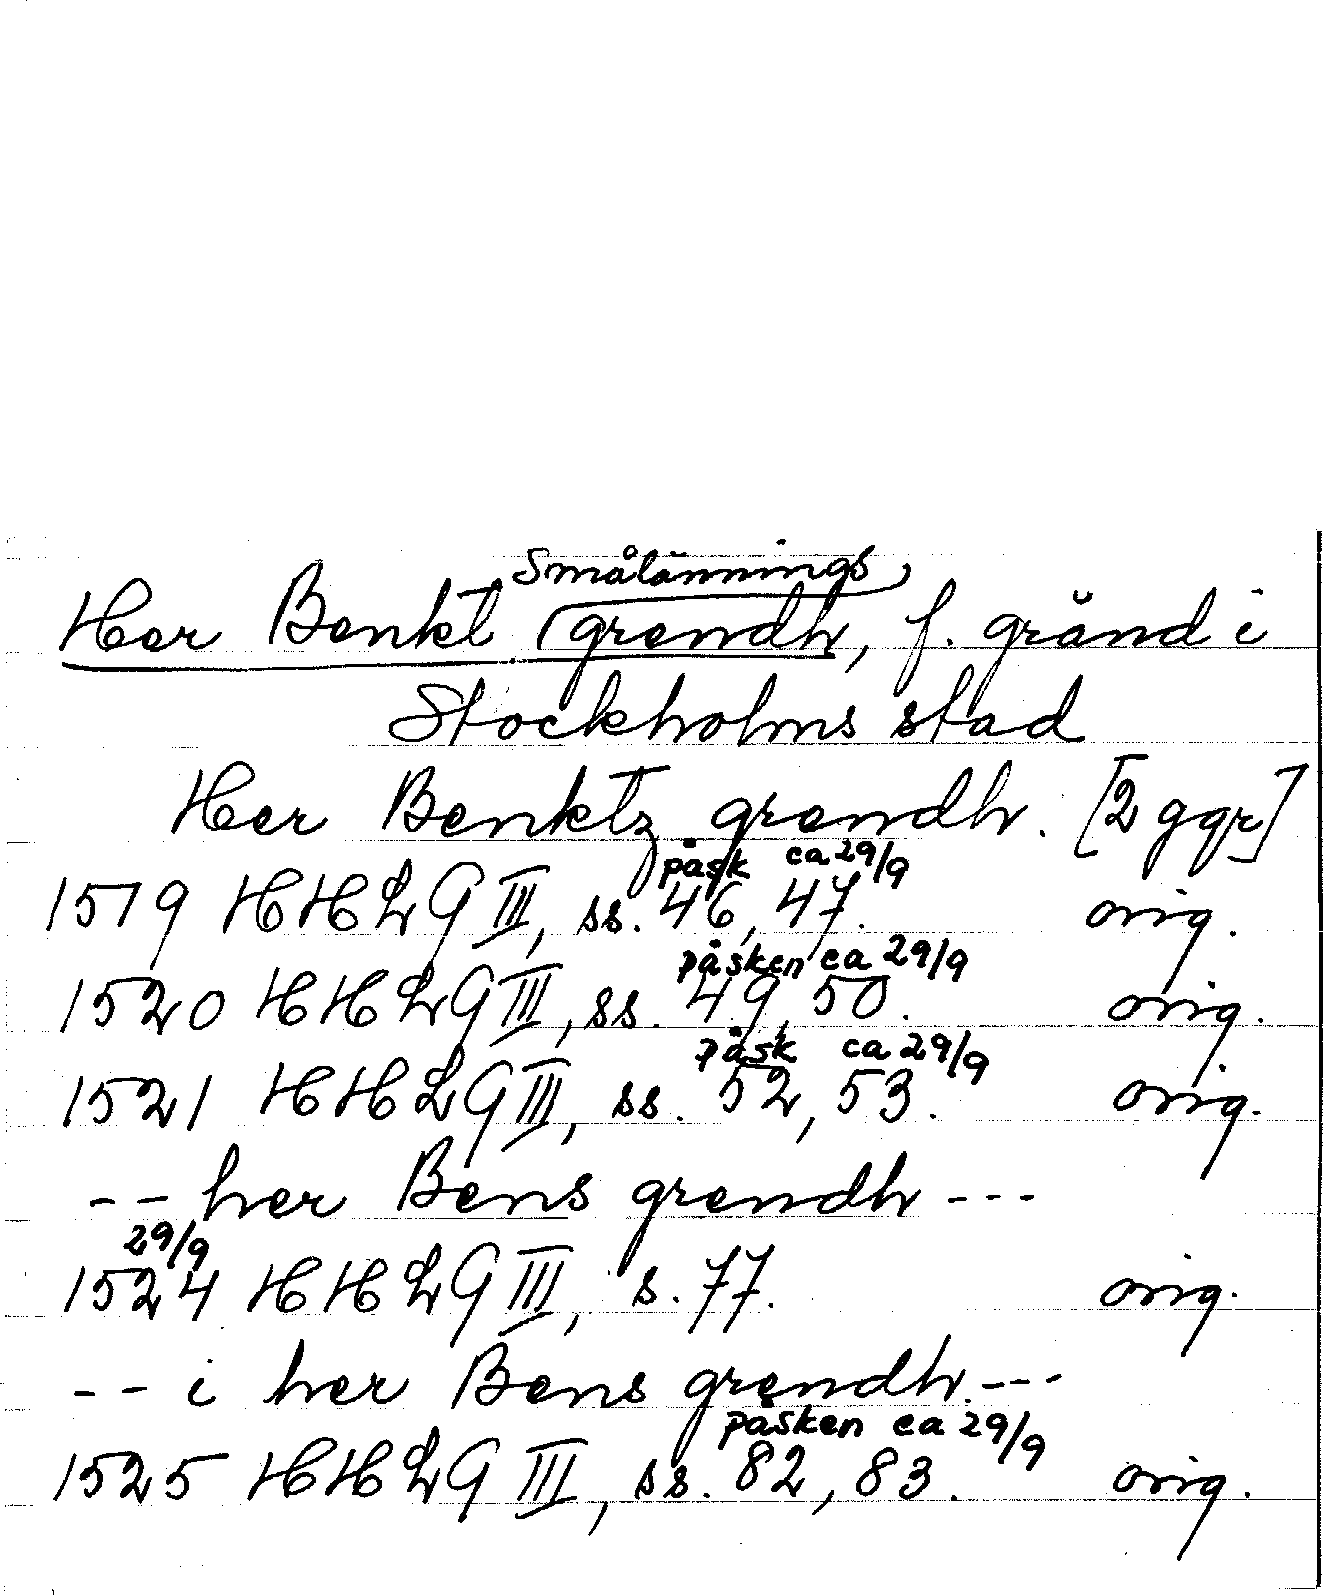 Smålännings
Her Benkt grendh, f. gränd i
Stockholms stad
Her Benktz grendh. [2 ggr]
påsk ca 29/9
1519 HHLG III, ss. 46, 47. orig.
påsken ca 29/9
1520 HHLG III, ss. 49, 50. orig.
påsk ca 29/9
1521 HHLG III, ss. 52, 53. orig.
-- her Bens grendh ---
29/9
1524 HHLG III, s. 77. orig.
-- i her Bens grendh. ---
påsken ca 29/9
1525 HHLG III, ss. 82, 83. orig.